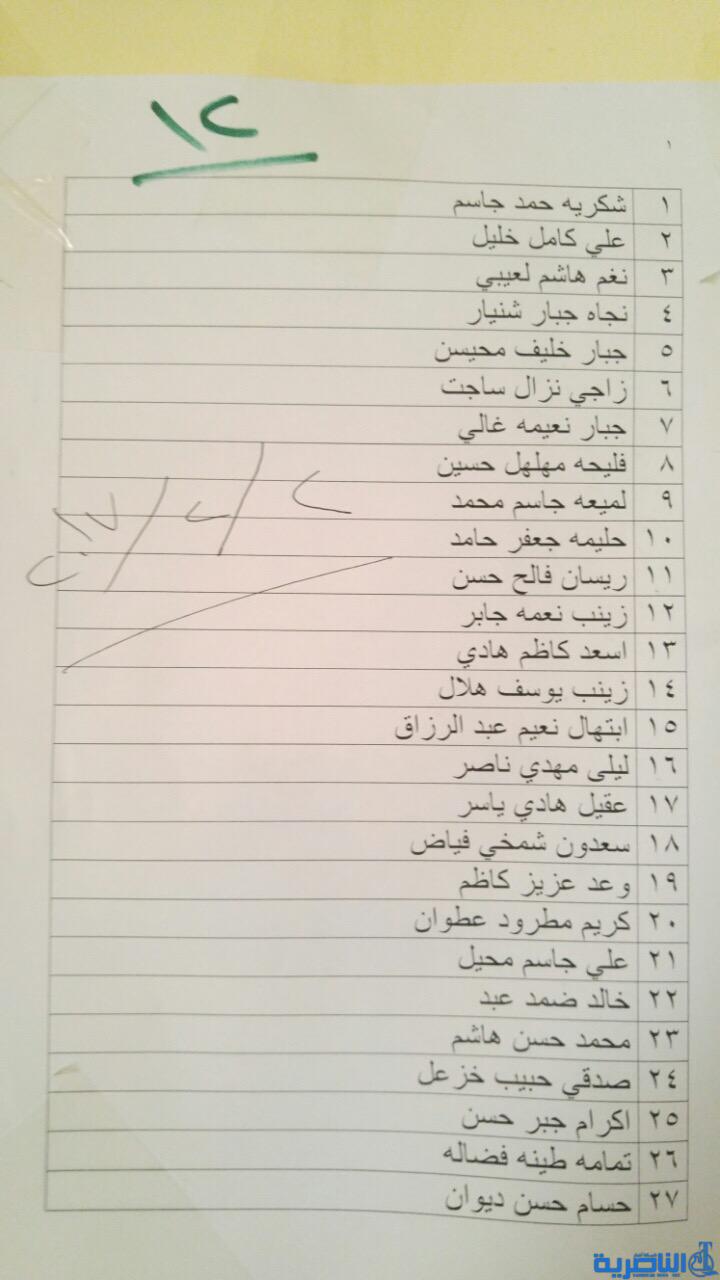 ١٢
١
١ شكريه حمد جاسم
٢ علي كامل خليل
٣ نغم هاشم لعيبي
٤ نجاه جبار شنيار
٥ جبار خليف محيسن
٦ زاجي نزال ساجت
٧ جبار نعيمه غالي
٨ فليحه مهلهل حسين
٩ لميعه جاسم محمد
١٠ حليمه جعفر حامد
١١ ريسان فالح حسن
١٢ زينب نعمه جابر
١٣ اسعد كاظم هادي
١٤ زينب يوسف هلال
١٥ ابتهال نعيم عبد الرزاق
١٦ ليلى مهدي ناصر
١٧ عقيل هادي ياسر
١٨ سعدون شمخي فياض
١٩ وعد عزيز كاظم
٢٠ كريم مطرود عطوان
٢١ علي جاسم محيل
٢٢ خالد ضمد عبد
٢٣ محمد حسن هاشم
٢٤ صدقي حبيب خزعل
٢٥ اكرام جبر حسن
٢٦ تمامه طينه فضاله
٢٧ حسام حسن ديوان
الناصرية